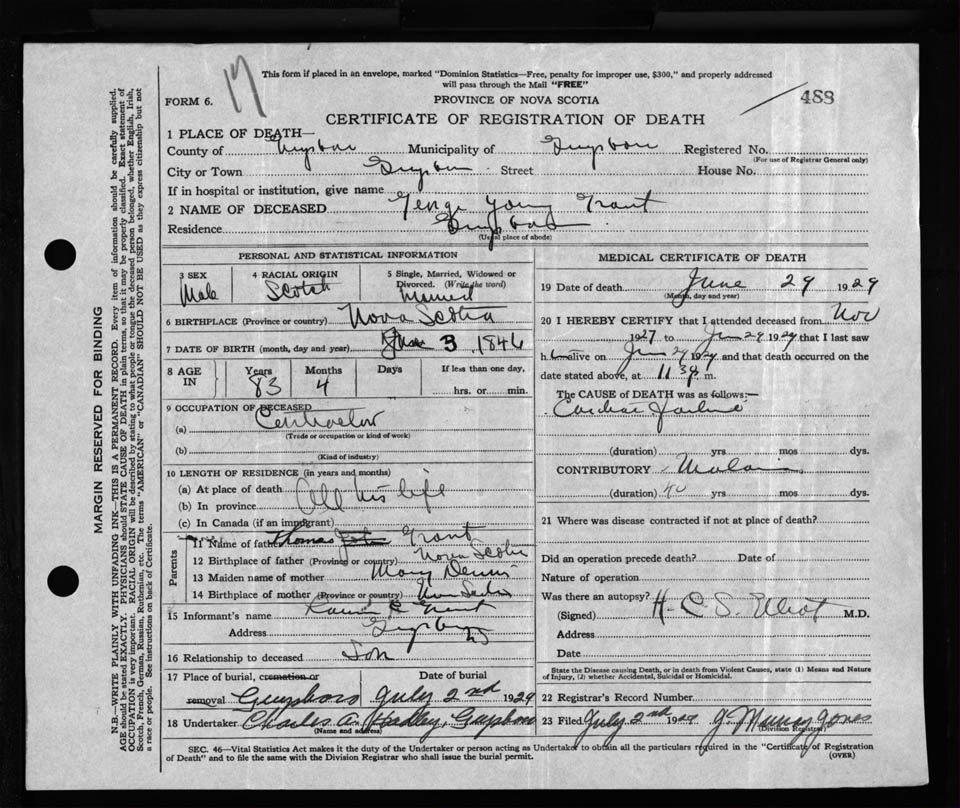 This form if placed in an envelope, marked "Dominion Statistics—Free, penalty for improper use, $300," and properly addressed
will pass through the Mail "FREE"
17
FORM 6.
PROVINCE OF NOVA SCOTIA
488
CERTIFICATE OF REGISTRATION OF DEATH
1 PLACE OF DEATH—
County of Guysboro Municipality of Guysboro Registered No.
(For use of Registrar General only)
City or Town Guysboro Street House No.
If in hospital or institution, give name
2 NAME OF DECEASED George Young Grant
Residence Guysboro
(Usual place of abode)
PERSONAL AND STATISTICAL INFORMATION
3 SEX 4 RACIAL ORIGIN 5 Single, Married, Widowed or Divorced. (Write the word)
Male Scotch Married
6 BIRTHPLACE (Province or country) Nova Scotia
7 DATE OF BIRTH (month, day and year) 3 1846
8 AGE IN Years Months Days If less than one day,
83 4 hrs. or min.
9 OCCUPATION OF DECEASED
(a)
(Trade or occupation or kind of work)
(b)
(Kind of industry)
10 LENGTH OF RESIDENCE (in years and months)
(a) At place of death All his life
(b) In province
(c) In Canada (if an immigrant)
Parents
11 Name of father Thomas Grant
12 Birthplace of father (Province or country) Nova Scotia
13 Maiden name of mother Mary
14 Birthplace of mother (Province or country) Nova Scotia
15 Informant's name Grant
Address Guysboro NS
16 Relationship to deceased Son
17 Place of burial, cremation or
removal Guysboro July 2nd 1929
18 Undertaker Charles A. Hadley, Guysboro
(Name and address)
MEDICAL CERTIFICATE OF DEATH
19 Date of death June 29 1929
(Month, day and year)
20 I HEREBY CERTIFY that I attended deceased from Nov
1927 to June 29 1929 that I last saw
h alive on June 29 1929 and that death occurred on
date stated above, at 11 30 m.
The CAUSE of DEATH was as follows:—
Cardiac Failure
(duration) yrs mos dys.
CONTRIBUTORY
(duration) 40 yrs mos dys.
21 Where was disease contracted if not at place of death?
Did an operation precede death? Date of
Nature of operation
Was there an autopsy?
(Signed) H. C. S. Elliot M.D.
Address
Date
State the Disease causing Death, or in death from Violent Causes, state (1) Means and Nature
of Injury, (2) whether Accidental, Suicidal or Homicidal.
22 Registrar's Record Number
23 Filed July 2nd 1929 J. Murray Jones
(Division Registrar)
SEC. 46—Vital Statistics Act makes it the duty of the Undertaker or person acting as Undertaker to obtain all the particulars required in the "Certificate of Registration
of Death" and to file the same with the Division Registrar who shall issue the burial permit.
(OVER)
MARGIN RESERVED FOR BINDING
N.B.—WRITE PLAINLY WITH UNFADING INK—THIS IS A PERMANENT RECORD. Every item of information should be carefully supplied.
AGE should be stated EXACTLY. PHYSICIANS should STATE CAUSE OF DEATH in plain terms, so that it may be properly classified. Exact statement of
OCCUPATION is very important. RACIAL ORIGIN will be described by stating to what people or tongue the deceased person belonged, whether English, Irish,
Scotch, French, German, Russian, Ruthenian, etc. The terms "AMERICAN" or "CANADIAN" SHOULD NOT BE USED as they express citizenship but not
a race or people. See instructions on back of Certificate.